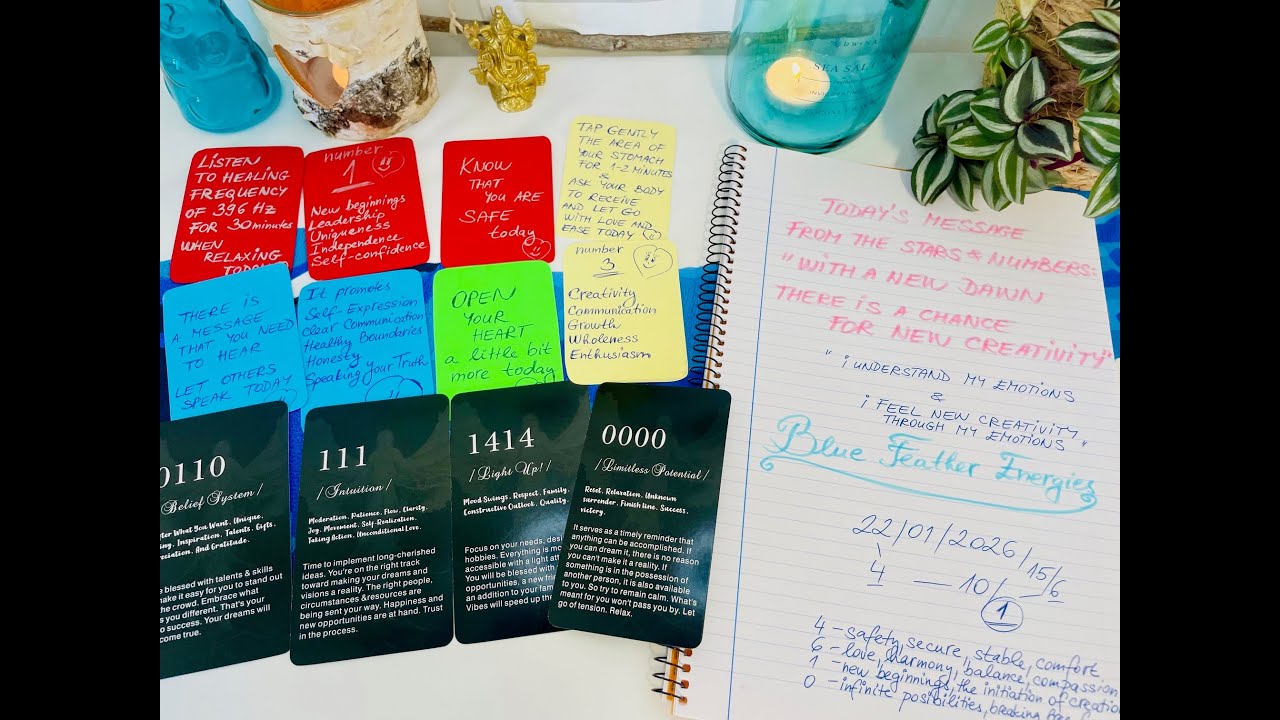 SEA SALT
LISTEN
TO HEALING
FREQUENCY
OF 396 HZ
FOR 30 minutes
WHEN
RELAXING
TODAY
number
1
New beginnings
Leadership
Uniqueness
Independence
Self-confidence
KNOW
THAT
YOU ARE
SAFE
today
TAP GENTLY
THE AREA OF
YOUR STOMACH
FOR 1-2 MINUTES
&
ASK YOUR BODY
TO RECEIVE
AND LET GO
WITH LOVE AND
EASE TODAY
THERE IS
A MESSAGE
THAT YOU NEED
TO HEAR
LET OTHERS
SPEAK TODAY
It promotes
Self-Expression
Clear Communication
Healthy Boundaries
Honesty
Speaking Your Truth
OPEN
YOUR
HEART
a little bit
more today
number
3
Creativity
Communication
Growth
Wholeness
Enthusiasm
0110
Belief System /
What You Want, Unique,
Inspiration, Talents, Gifts,
And Gratitude.
blessed with talents & skills
make it easy for you to stand out
the crowd. Embrace what
you different. That's your
to success. Your dreams will
come true.
111
/ Intuition /
Moderation, Patience, Flow, Clarity,
Joy, Movement, Self-Realization,
Taking Action, Unconditional Love.
Time to implement long-cherished
ideas. You're on the right track
toward making your dreams and
visions a reality. The right people,
circumstances &resources are
being sent your way. Happiness and
new opportunities are at hand. Trust
in the process.
1414
/ Light Up! /
Mood Swings, Respect, Family,
Constructive Outlook, Quality.
Focus on your needs,
hobbies. Everything is
accessible with a light
You will be blessed with
opportunities, a new
an addition to your
Vibes will speed up the
0000
/ Limitless Potential /
Reset, Relaxation, Unknown
surrender, Finish line, Success,
victory.
It serves as a timely reminder that
anything can be accomplished. If
you can dream it, there is no reason
you can't make it a reality. If
something is in the possession of
another person, it is also available
to you. So try to remain calm. What's
meant for you won't pass you by. Let
go of tension. Relax.
TODAY'S MESSAGE
FROM THE STARS & NUMBERS:
"WITH A NEW DAWN
THERE IS A CHANCE
FOR NEW CREATIVITY"
"I UNDERSTAND MY EMOTIONS
&
I FEEL NEW CREATIVITY
THROUGH MY EMOTIONS"
Blue Feather Energies
22/01/2026/15/6
4 — 10/
1
4 - safety, secure, stable, comfort
6 - love, harmony, balance, compassion
1 - new beginnings, the initiation of creation
0 - infinite posibilities, breaking free